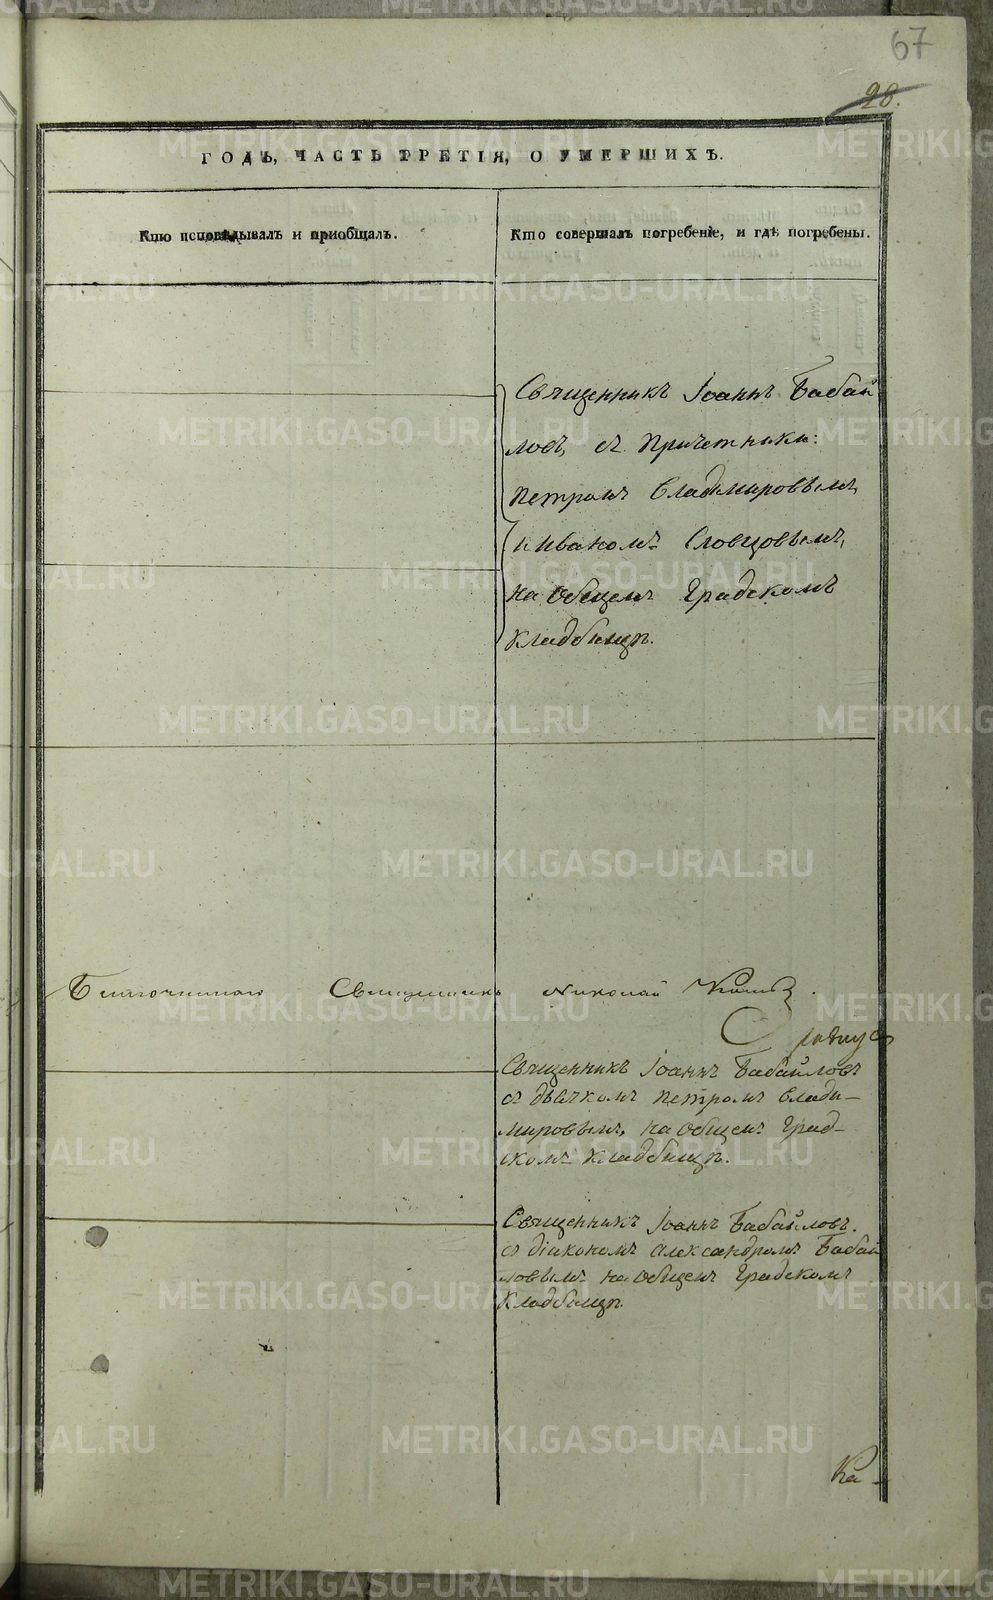 67
28.
ГОДЪ, ЧАСТЬ ТРЕТІЯ, О УМЕРШИХЪ.
Кто исповѣдывалъ и приобщалъ.
Кто совершалъ погребеніе, и гдѣ погребены.
Священникъ Іоаннъ Бабай
ловъ, съ причетники:
Петромъ Владимировымъ,
и Иваномъ Словцовымъ,
на общемъ Градскомъ
кладбищѣ.
Благочинный Священникъ Николай
Священникъ Іоаннъ Бабайловъ
съ дьячкомъ Петромъ Влади-
мировымъ, на общемъ Град-
скомъ кладбищѣ.
Священникъ Іоаннъ Бабайловъ.
съ діакономъ Александромъ Бабай
ловымъ на общемъ Градскомъ
кладбищѣ.
Ка-
METRIKI.GASO-URAL.RU